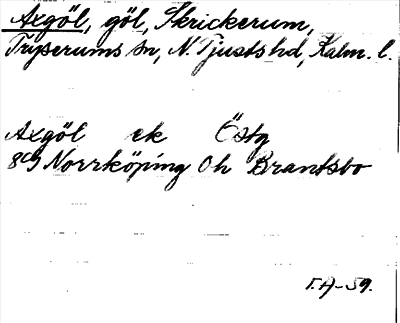 Axgöl, göl, Skrickerum,
Tryserums sn, N. Tjusts hd, Kalm. l.
Axgöl ek Östg
8G9 Norrköping Oh Brantsbo
T.A-59.